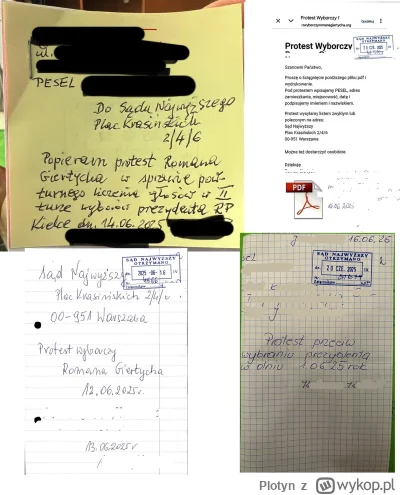 PESEL
Do Sądu Najwyższego
Plac Krasińskich
2/4/6
Popieram protest Romana
Giertycha w sprawie pow-
turnego liczenia głosów w II
turze wyborów prezydenta RP
Kielce dn. 14.06.2025
Protest Wyborczy f
Protest Wyborczy
Szanowni Państwo,
Proszę o ściągnięcie poniższego pliku pdf i
wydrukowanie.
Pod protestem wpisujemy PESEL, adres
zamieszkania, miejscowość, datę i
podpisujemy imieniem i nazwiskiem.
Protest wysyłamy listem zwykłym lub
poleconym na adres:
Sąd Najwyższy
Plac Krasińskich 2/4/6
00-951 Warszawa
Można też dostarczyć osobiście
Dziękuję
PDF
16.06.2025
Sąd Najwyższy
SĄD NAJWYŻSZY
OTRZYMANO
2025 -06- 16
Plac Krasińskich 2/4/6
00-951 Warszaba
Protest wyborczy
Romana Giertycha
12.06.2025r.
13.06.2025r
16.06.25
SĄD NAJWYŻSZY
OTRZYMANO
20 CZE. 2025
Protest przeciw
wybraniu prezydenta
w dniu 1 06 25 rok
Plotyn z wykop.pl